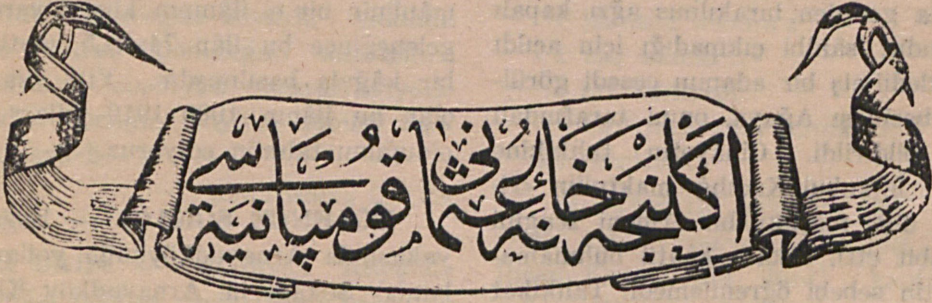 اكلنجه خانۀ عثمانی قومپانیه سی